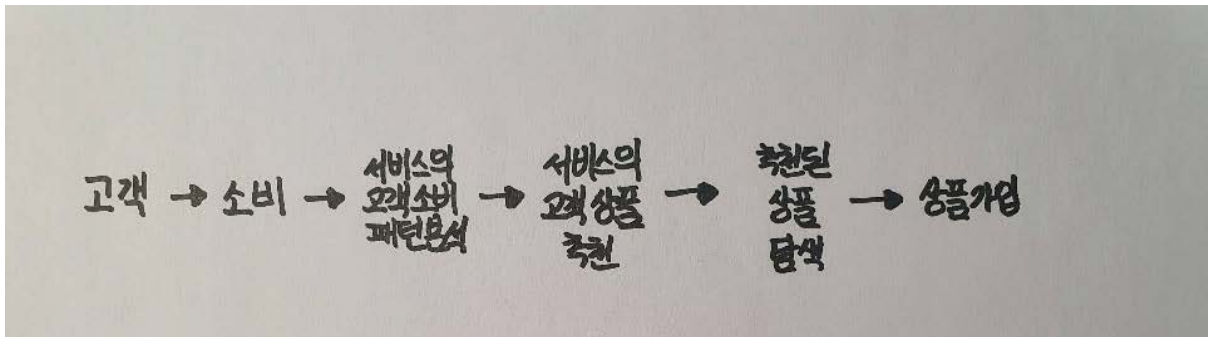 고객 → 소비 →
서비스의
고객소비
패턴분석
→
서비스의
고객 상품
추천
→
추천된
상품
탐색
→ 상품가입